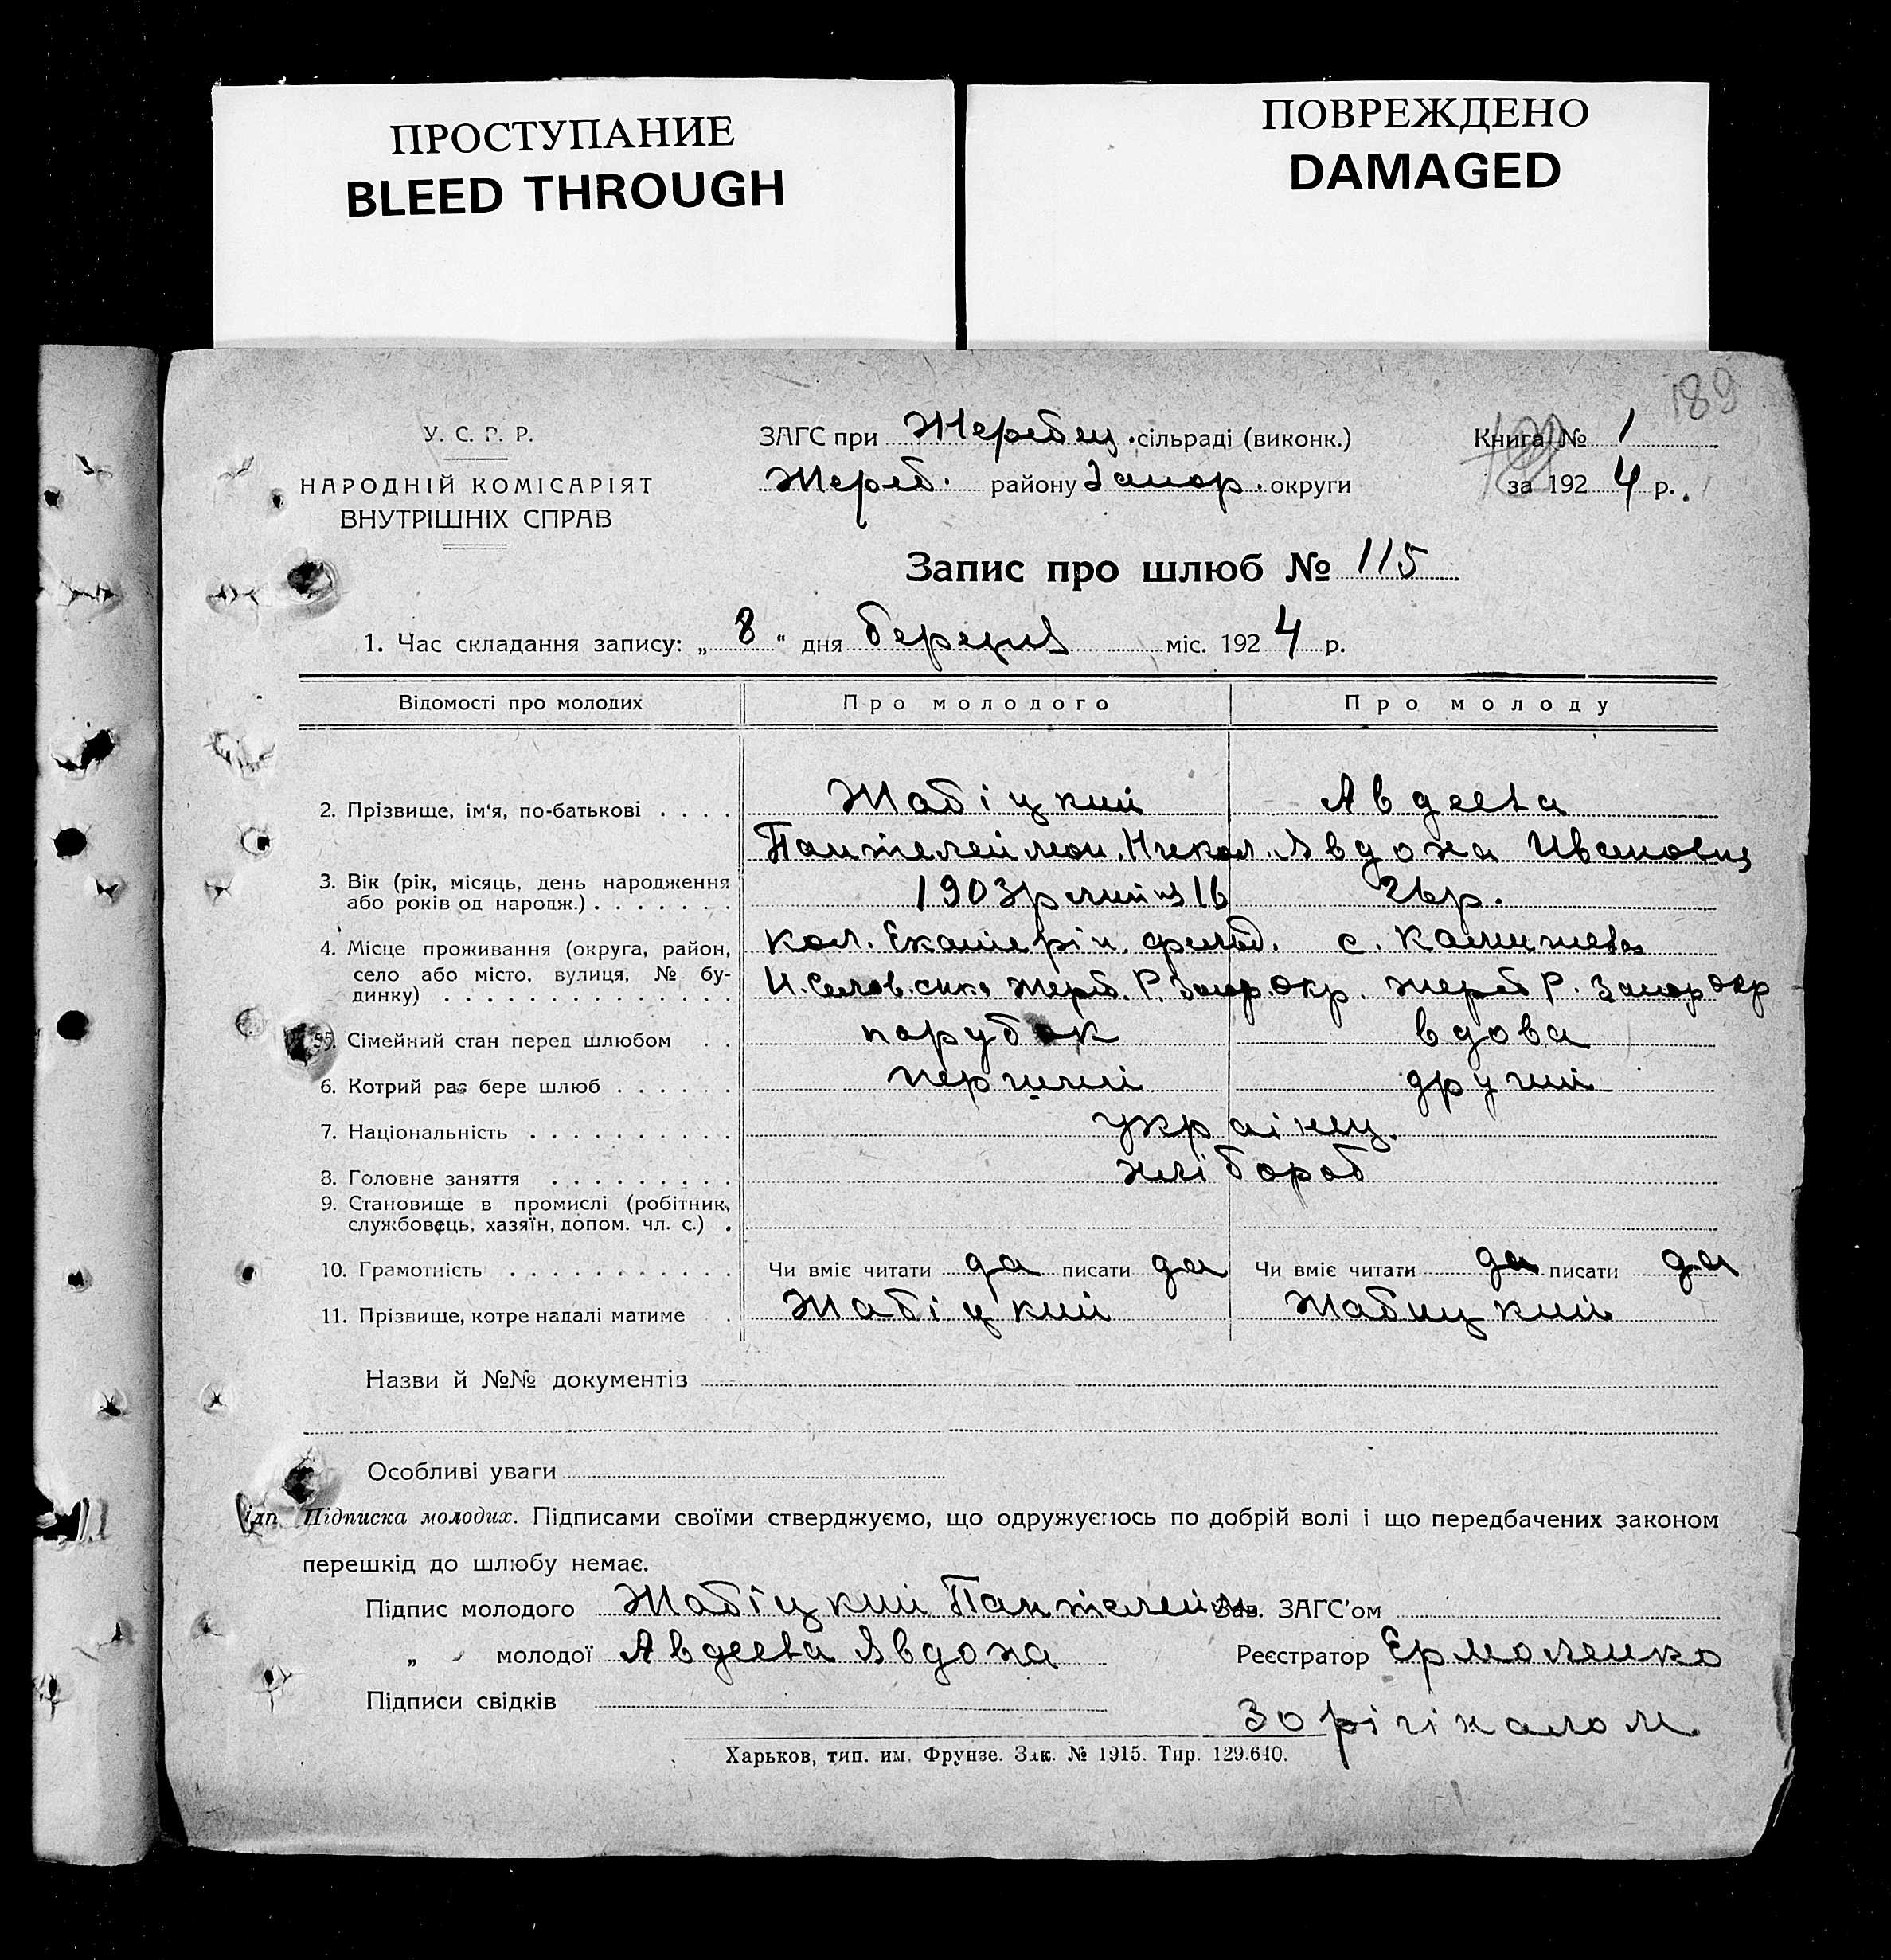 ПРОСТУПАНИЕ
BLEED THROUGH
ПОВРЕЖДЕНО
DAMAGED
189
У. С. Р. Р.
НАРОДНІЙ КОМІСАРІЯТ
ВНУТРІШНІХ СПРАВ
ЗАГС при Жеребец. сільраді (виконк.)
Жереб. району Запор. округи
Книга № 1
за 1924 р.
Запис про шлюб № 115
1. Час складання запису: „8“ дня березня міс. 1924 р.
Відомості про молодих Про молодого Про молоду
2. Прізвище, ім'я, по-батькові . . . . Жабіцкий Авдеева
Пантелеймон. Никол. Явдоха Ивановна
3. Вік (рік, місяць, день народження
або років од народж.) . . . . . . . 1903р липня 16 26р.
4. Місце проживання (округа, район,
село або місто, вулиця, № бу-
динку) . . . . . . . . . . . . . .
кол. Екатерін. фельд. с. Камишеваха
Жереб. Р. Запор. Окр. Жереб Р. Запор Окр
5. Сімейний стан перед шлюбом . . парубок вдова
6. Котрий раз бере шлюб . . . . . . перший другий
7. Національність . . . . . . . . . . українц.
8. Головне заняття . . . . . . . . . хлібороб
9. Становище в промислі (робітник,
службовець, хазяїн, допом. чл. с.) .
10. Грамотність . . . . . . . . . . . Чи вміє читати да писати да Чи вміє читати да писати да
11. Прізвище, котре надалі матиме . Жабіцкий Жабицкий
Назви й №№ документів
Особливі уваги
Підписка молодих. Підписами своїми стверджуємо, що одружуємось по добрій волі і що передбачених законом
перешкід до шлюбу немає.
Підпис молодого Жабіцкий Пантелейм Зав. ЗАГС'ом
„ молодої Авдеева Явдоха Реєстратор Ермоленко
Підписи свідків
З орігіналом
Харьков, тип. им. Фрунзе. Зак. № 1915. Тир. 129.640.